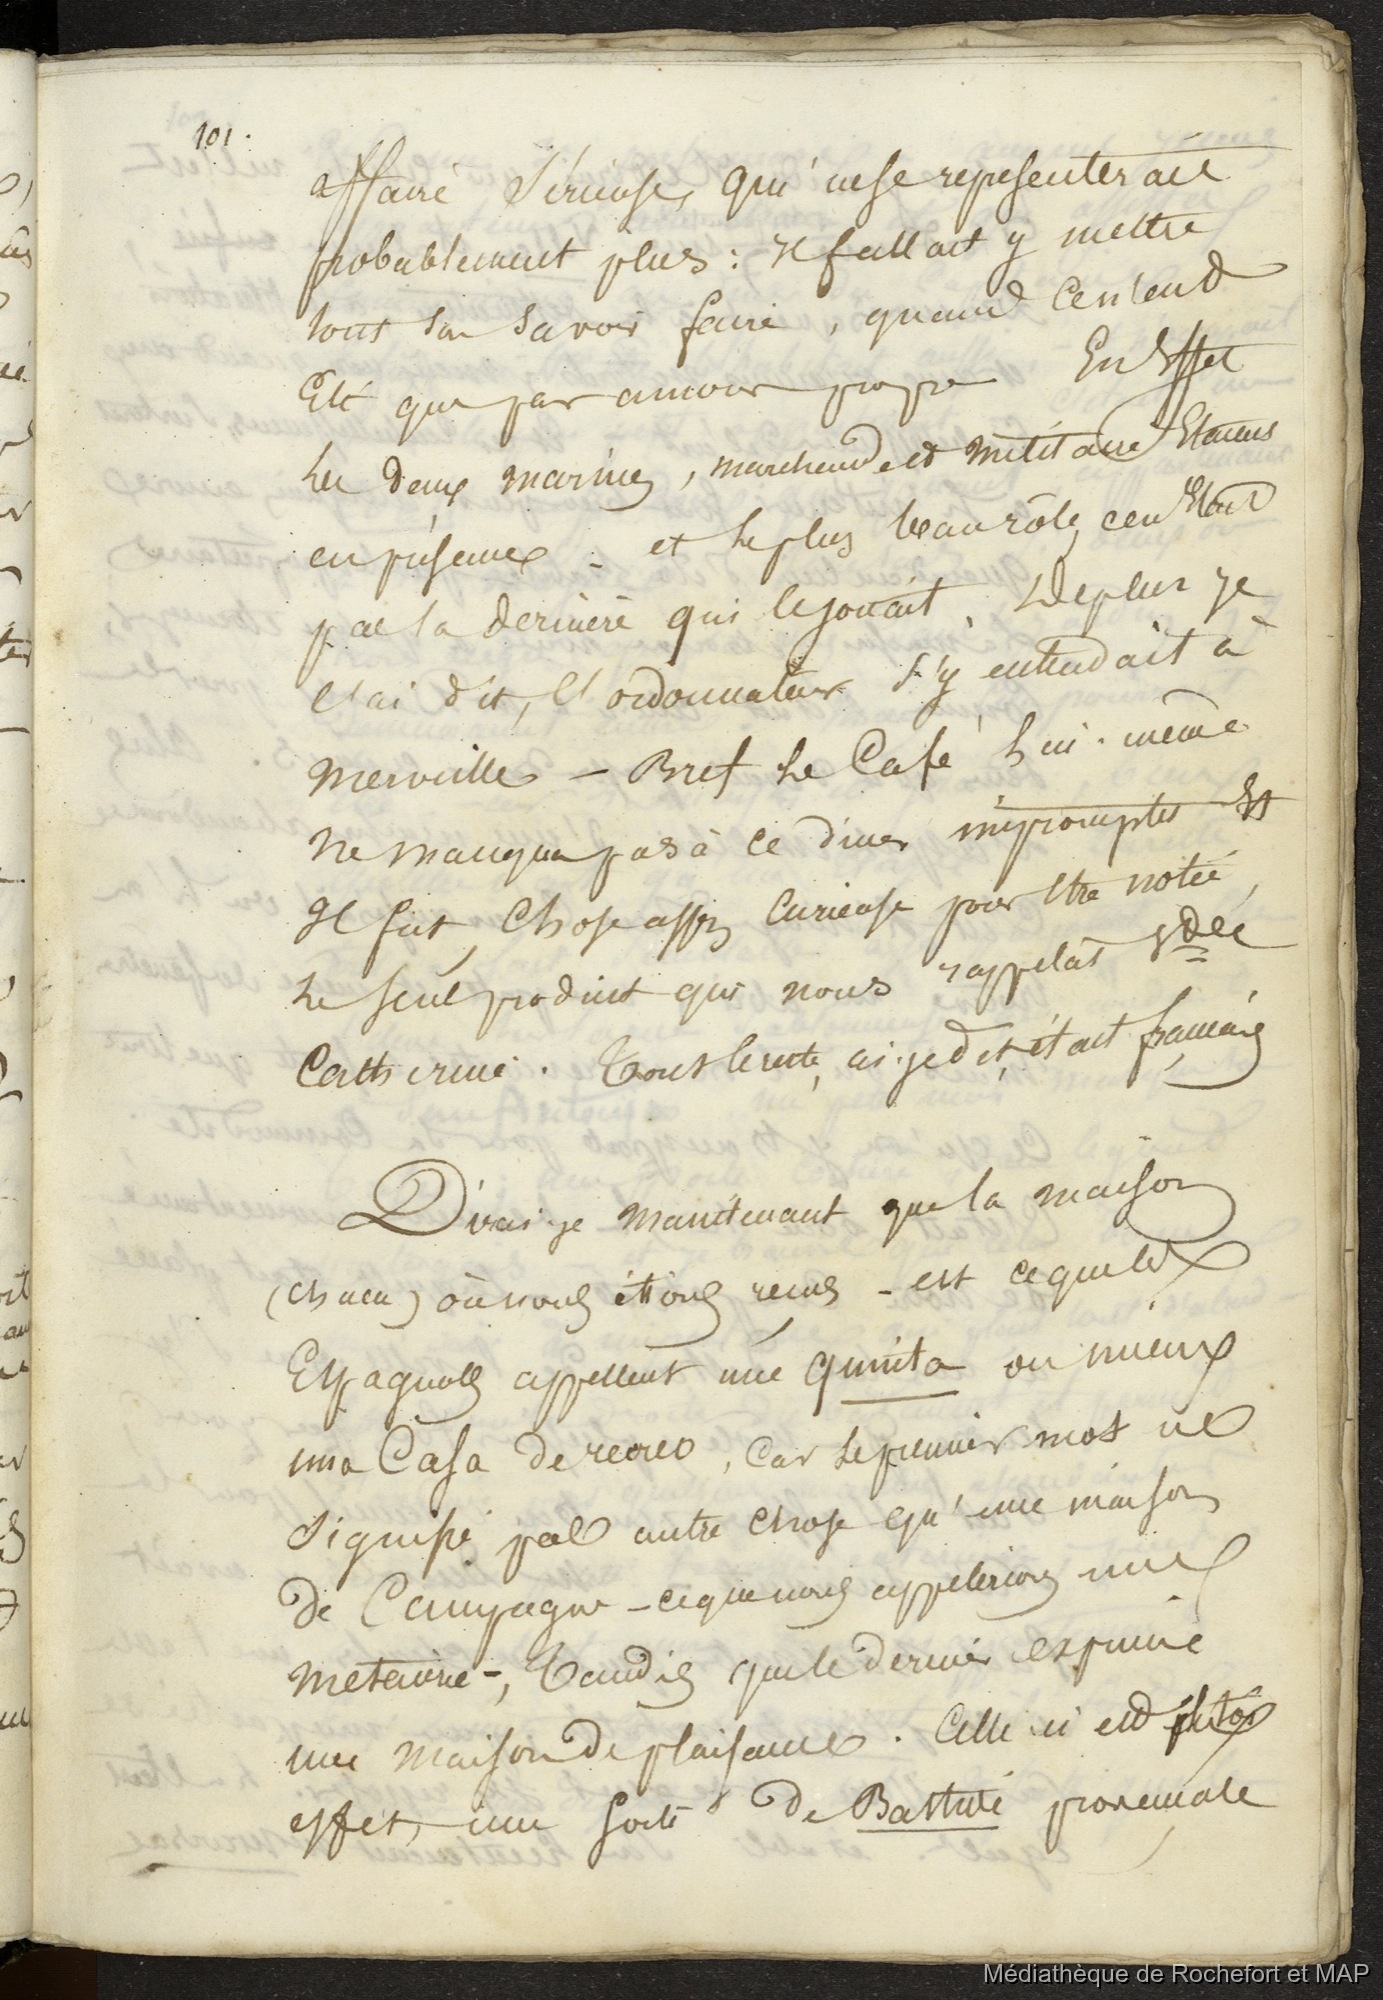 101.
affaire sérieuse, qui ne se representerait
probablement plus : il fallait y mettre
tout son savoir faire, quand ce n'eut
Eté que par amour propre En Effet
les deux marines, marchande et militaire Etaient
en présence - et le plus beau rôle, ce n'Etait
pas la dernière qui le jouait. De plus je
l'ai dit, l'ordonnateur s'y entendait à
merveille - Bref le Café lui-même
ne manqua pas à ce diner impromptu Et
Il fut, chose assez curieuse pour être notée,
le seul produit qui nous rappelât Ste
Catherine. Tout le reste, ai-je dit, était français
Dirai-je maintenant que la maison
(chaca) où nous étions reçus - est ce que les
Espagnols appellent une quinta ou mieux
una Casa de recreo, car le premier mot ne
signifie pas autre chose qu'une maison
de Campagne - ce que nous appelerions une
metairie -, Tandis que le dernier exprime
une maison de plaisance. Celle ci est
effet, une sorte de Bastide provencale
Médiathèque de Rochefort et MAP